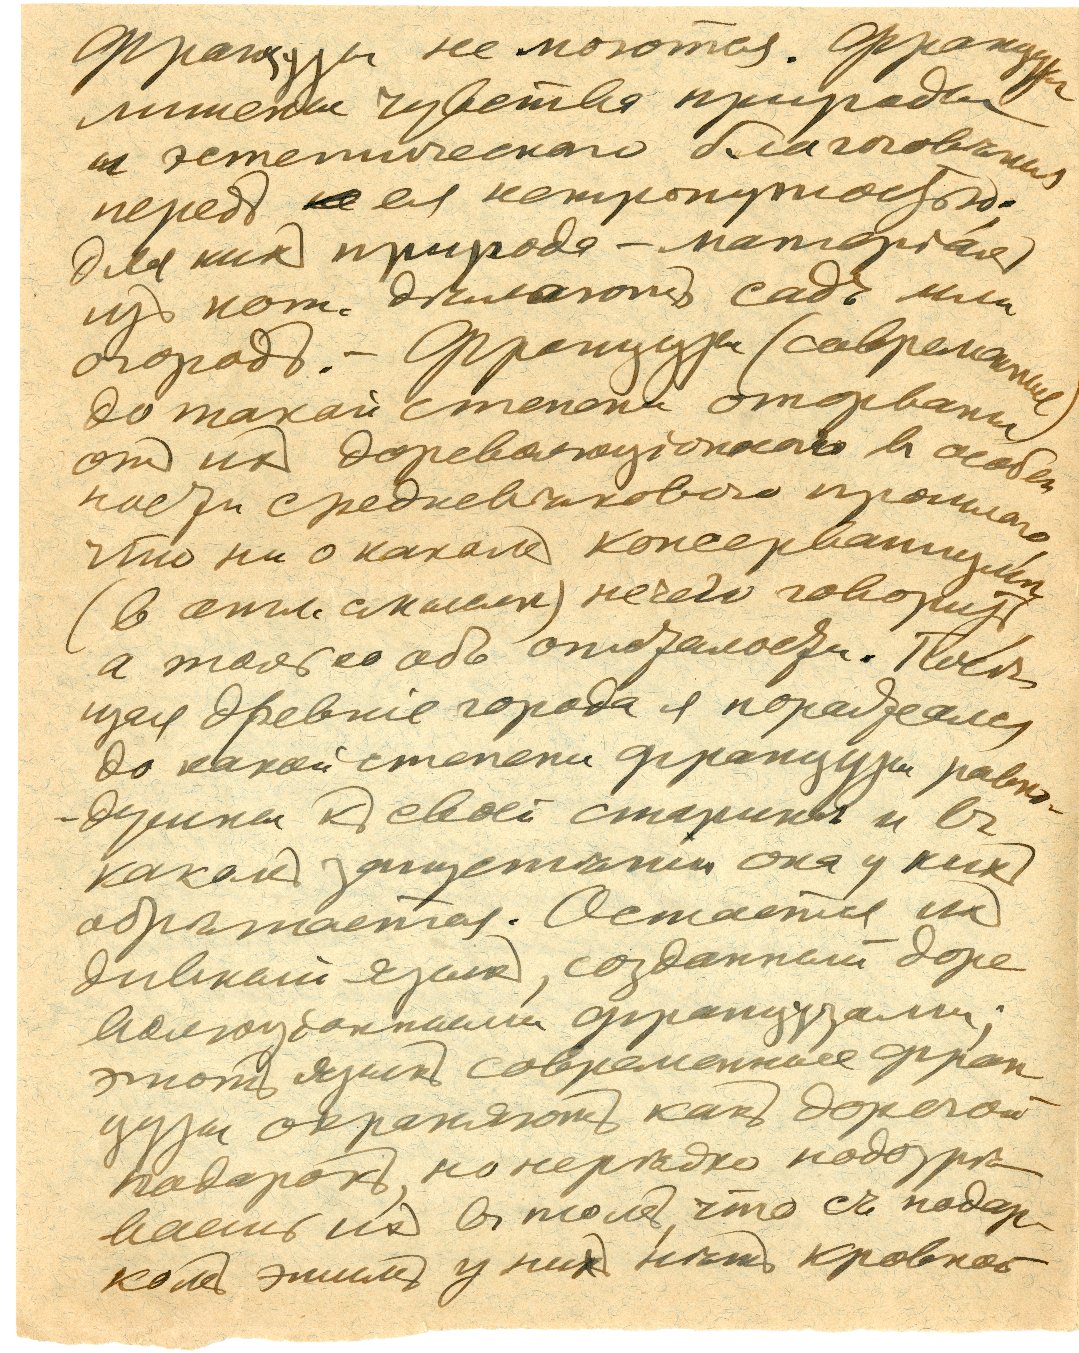 Французы не молются. Французы
лишены чувства природы
и эстетическаго благоговѣнія
передъ ея нетронутостью;
для нихъ природа – матеріалъ
изъ кот. дѣлаютъ садъ или
огородъ. – Французы (современные)
до такой степени оторваны
отъ ихъ дореволюціоннаго в особен
ности средневѣковаго прошлаго,
что ни о какомъ консерватизмѣ
(в англ. смыслѣ) нечего говорить
а только объ отсталости. Посѣ-
щая древніе города я поражался
до какой степени французы равно-
-душны къ своей старинѣ и въ
какомъ запустѣніи она у нихъ
обрѣтается. Остается ихъ
дивный языкъ, созданный доре
волюціонными французами;
этотъ языкъ современные фран
цузы охраняютъ какъ дорогой
подарокъ, но нерѣдко подозрѣ
ваешь ихъ въ томъ, что съ подар-
комъ этимъ у нихъ нѣтъ кровной